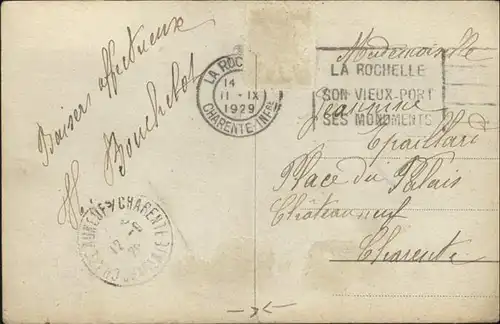 Baisers affectueux
H. Bouchelot
LA ROCHELLE
14
11 - IX
1929
CHARENTE-INFRE
LA ROCHELLE
SON VIEUX-PORT
SES MONUMENTS
Mademoiselle
Jeannine
Epaillard
Place du Palais
Châteauneuf
Charente
CHATEAUNEUF S/CHARENTE
12
CHARENTE